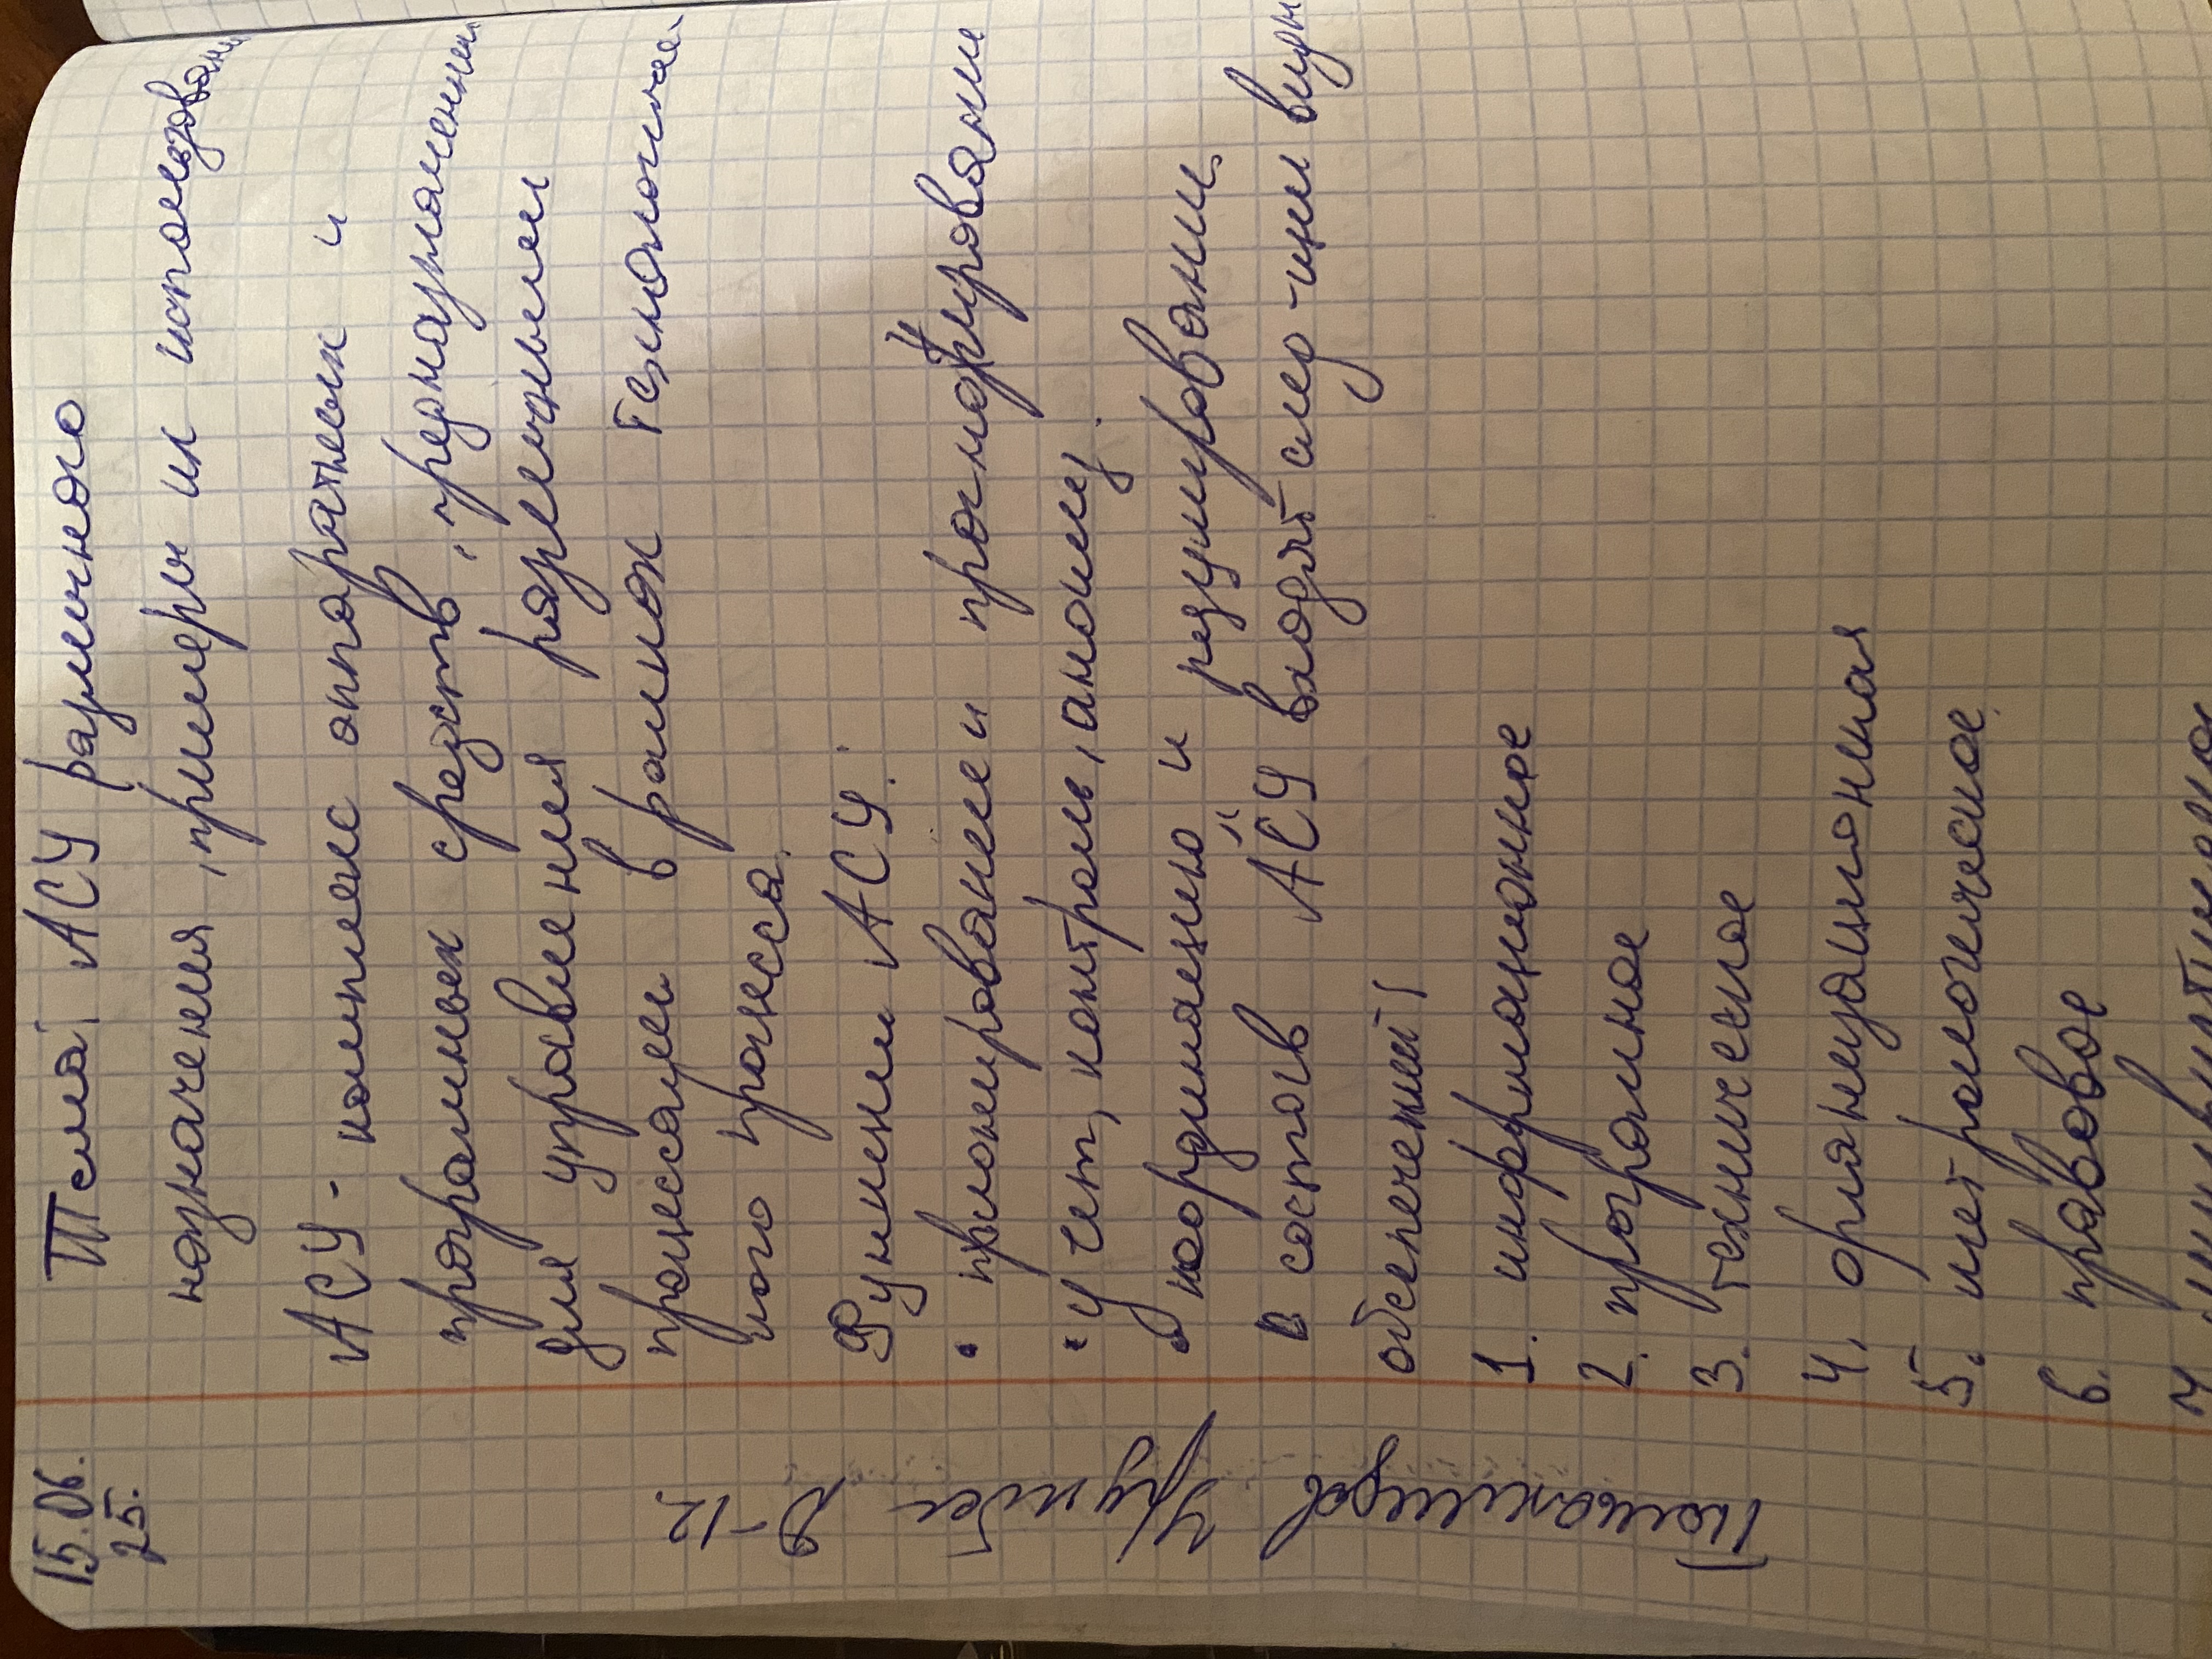 15.06.
25.
Тема: АСУ различного
назначения, примеры их использовани
АСУ - комплекс аппаратных и
програмных средств, предназначенны
для управления различными
процессами в рамках технологичес
кого процесса.
Функции АСУ:
• приланирование и прогнозировани
• Учет, контроль, анализ
• координацию и регулировании
В состав АСУ входят след-щии виды
обеспечений:
1. информационное
2. програмное
3. техническое
4. организационная
5. метрологическое
6. правовое
7. лингвистическое